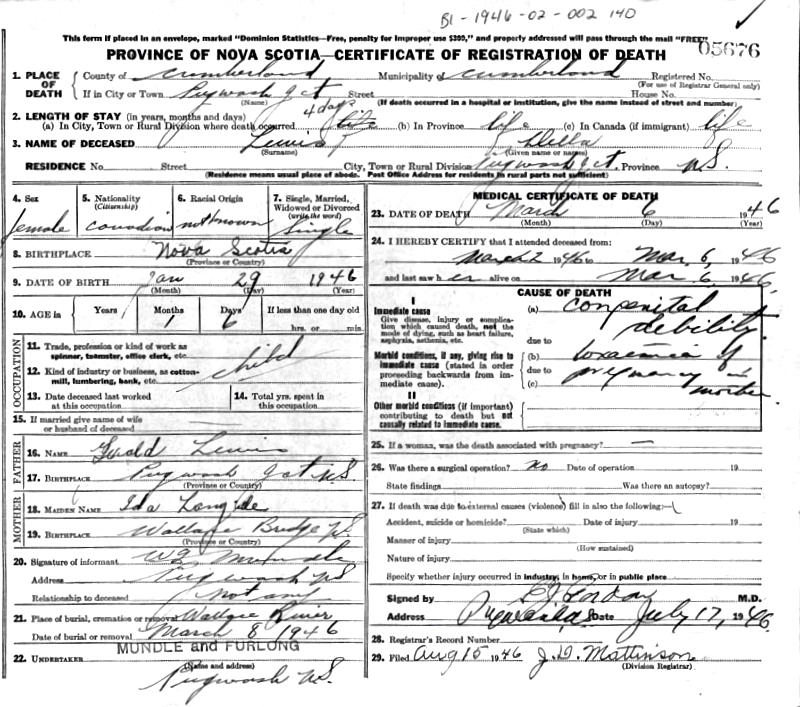 B1-1946-02-002140
This form if placed in an envelope, marked "Dominion Statistics—Free, penalty for improper use $300," and property addressed will pass through the mail "FREE"
05676
PROVINCE OF NOVA SCOTIA—CERTIFICATE OF REGISTRATION OF DEATH
1. PLACE OF DEATH
County of Cumberland Municipality of Cumberland Registered No.
(For use of Registrar General only)
If in City or Town Pugwash Jct Street House No.
(Name) (If death occurred in a hospital or institution, give the name instead of street and number)
2. LENGTH OF STAY (in years, months and days) 4 days
(a) In City, Town or Rural Division where death occurred life (b) In Province life (c) In Canada (if immigrant) life
3. NAME OF DECEASED Lewis Della
(Surname) (Given name or names)
RESIDENCE No. Street City, Town or Rural Division Pugwash Jct. Province N.S.
(Residence means usual place of abode. Post Office Address for residents in rural parts not sufficient)
4. Sex female
5. Nationality (Citizenship) Canadian
6. Racial Origin not known
7. Single, Married, Widowed or Divorced (write the word) Single
8. BIRTHPLACE Nova Scotia
(Province or Country)
9. DATE OF BIRTH Jan 29 1946
(Month) (Day) (Year)
10. AGE in Years Months 1 Days 6 If less than one day old
hrs. or min.
OCCUPATION
11. Trade, profession or kind of work as spinner, teamster, office clerk, etc.
child
12. Kind of industry or business, as cotton-mill, lumbering, bank, etc.
13. Date deceased last worked at this occupation
14. Total yrs. spent in this occupation
15. If married give name of wife or husband of deceased
FATHER
16. NAME Gerald Lewis
17. BIRTHPLACE Pugwash Jct N.S.
(Province or Country)
MOTHER
18. MAIDEN NAME Ida
19. BIRTHPLACE Wallace Bridge N.S.
(Province or Country)
20. Signature of informant
Address Pugwash N.S.
Relationship to deceased not any
21. Place of burial, cremation or removal Wallace River
Date of burial or removal March 8 1946
MUNDLE and FURLONG
22. UNDERTAKER
(Name and address)
Pugwash N.S.
MEDICAL CERTIFICATE OF DEATH
23. DATE OF DEATH March 6 1946
(Month) (Day) (Year)
24. I HEREBY CERTIFY that I attended deceased from:
March 2 1946 to Mar. 6, 1946
and last saw her alive on Mar 6, 1946
CAUSE OF DEATH
I
Immediate cause
Give disease, injury or complication which caused death, not the mode of dying, such as heart failure, asphyxia, asthenia, etc.
(a) congenital debility
due to
Morbid conditions, if any, giving rise to immediate cause (stated in order proceeding backwards from immediate cause)
(b) toxaemia of
due to pregnancy in
(c) mother
II
Other morbid conditions (if important) contributing to death but not causally related to immediate cause.
25. If a woman, was the death associated with pregnancy? —
26. Was there a surgical operation? no Date of operation 19
State findings Was there an autopsy?
27. If death was due to external causes (violence) fill in also the following:—
Accident, suicide or homicide? Date of injury 19
(State which)
Manner of injury
(How sustained)
Nature of injury
Specify whether injury occurred in industry, in home, or in public place
Signed by M.D.
Address Date July 17, 1946
28. Registrar's Record Number
29. Filed Aug 15 1946 J.D. Mattinson
(Division Registrar)